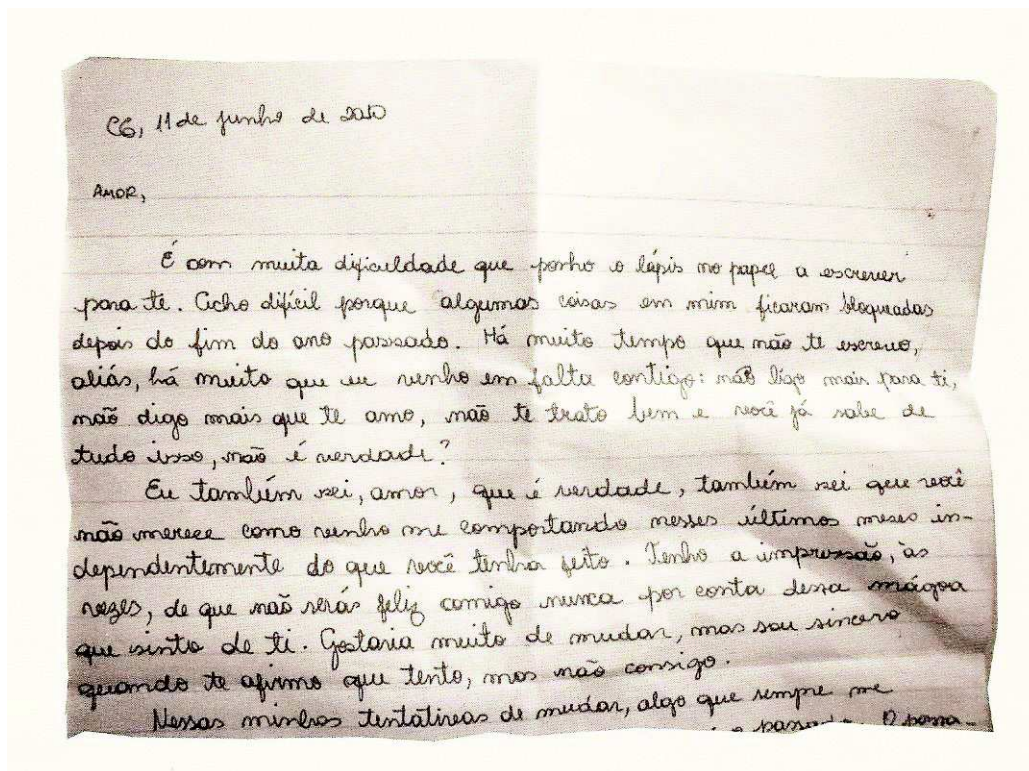 CG, 11 de junho de 2010
AMOR,
É com muita dificuldade que ponho o lápis no papel a escrever
para ti. Acho difícil porque algumas coisas em mim ficaram bloqueadas
depois do fim do ano passado. Há muito tempo que não te escrevo,
aliás, há muito que eu venho em falta contigo: não ligo mais para ti,
não digo mais que te amo, não te trato bem e você já sabe de
tudo isso, não é verdade?
Eu também sei, amor, que é verdade, também sei que você
não merece como venho me comportando nesses últimos meses in-
dependentemente do que você tenha feito. Tenho a impressão, às
vezes, de que não serás feliz comigo nunca por conta dessa mágoa
que sinto de ti. Gostaria muito de mudar, mas sou sincero
quando te afirmo que tento, mas não consigo.
Nessas minhas tentativas de mudar, algo que sempre me
o passado. O passa-